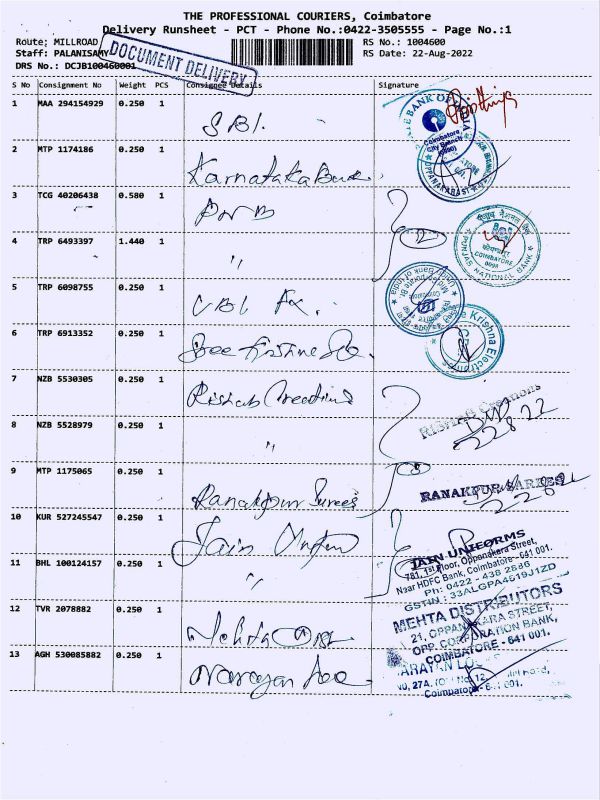 THE PROFESSIONAL COURIERS, Coimbatore
Delivery Runsheet - PCT - Phone No.:0422-3505555 - Page No.:1
Route; MILLROAD RS No.: 1004600
Staff: PALANISAMY RS Date: 22-Aug-2022
DRS No.: DCJB100460001
DOCUMENT DELIVERY
S No Consignment No Weight PCS Consignee Details Signature
1 MAA 294154929 0.250 1 SBI.
2 MTP 1174186 0.250 1 Karnataka Bank
3 TCG 40206438 0.580 1 PNB
4 TRP 6493397 1.440 1 "
5 TRP 6098755 0.250 1 UBI
6 TRP 6913352 0.250 1 Sree Krishna
7 NZB 5530305 0.250 1 Rishab Creations
8 NZB 5528979 0.250 1 "
9 MTP 1175065 0.250 1 Ranakpur Sarees
10 KUR 527245547 0.250 1 Jain
11 BHL 100124157 0.250 1 "
12 TVR 2078882 0.250 1 Mehta
13 AGH 530085882 0.250 1 Narayan
STATE BANK OF INDIA
Coimbatore
City Branch
पंजाब नैशनल बैंक
COIMBATORE
PUNJAB NATIONAL BANK
Union Bank of India
Krishna Electronics
RISHAB Creations
22822
RANAKPUR SAREES
JAIN UNIFORMS
781, 1st Floor, Oppanakara Street,
Near HDFC Bank, Coimbatore - 641 001.
Ph: 0422 - 438 2686
GSTIN : 33ALGPA4619J1ZD
MEHTA DISTRIBUTORS
21, OPPANAKARA STREET,
OPP. CORPORATION BANK,
COIMBATORE - 641 001.